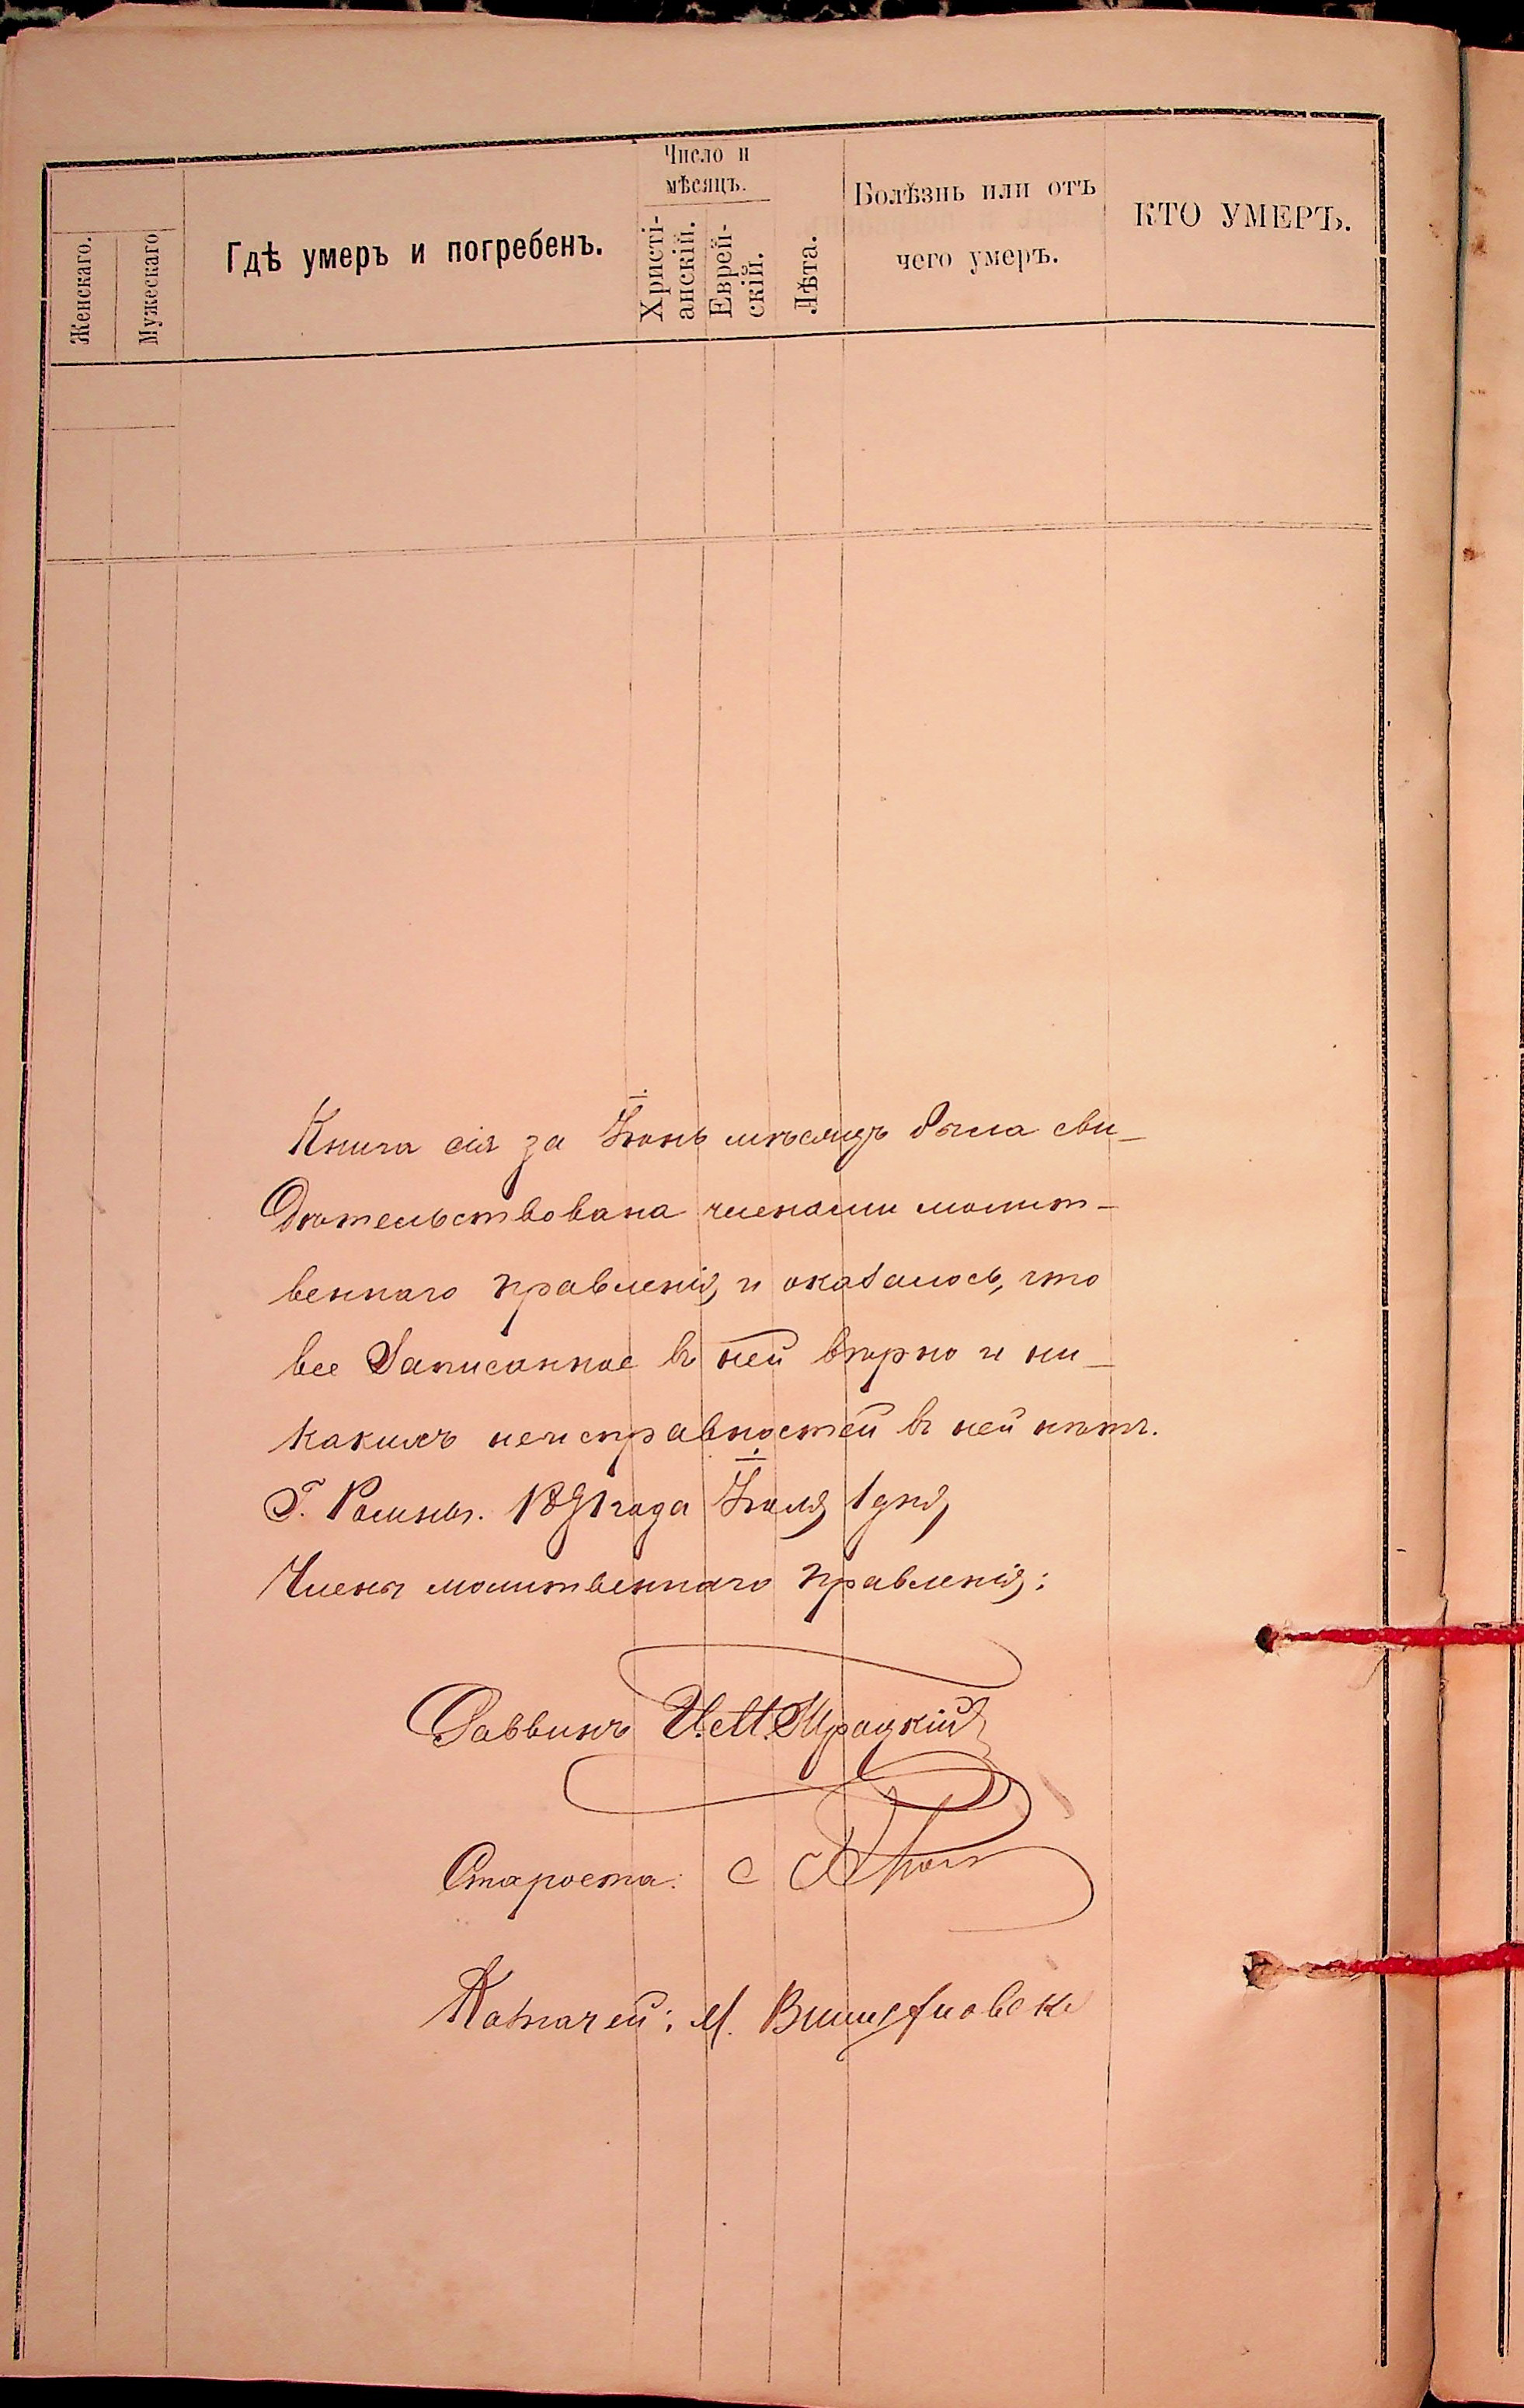 Женскаго.
Мужескаго
Гдѣ умеръ и погребенъ.
Число и
мѣсяцъ.
Христі-
анскій.
Еврей-
скій.
Лѣта.
Болѣзнь или отъ
чего умеръ.
КТО УМЕРЪ.
Книга сія за Іюнь мѣсяцъ была сви-
дѣтельствована членами молит-
веннаго правленія, и оказалось, что
все записанное въ ней вѣрно и ни-
какихъ неисправностей въ ней нѣтъ.
Г. Ромны. 1891 года Іюля 1 дня
Члены молитвеннаго правленія:
Раввинъ И. М.
Староста: С
Казначей: М.